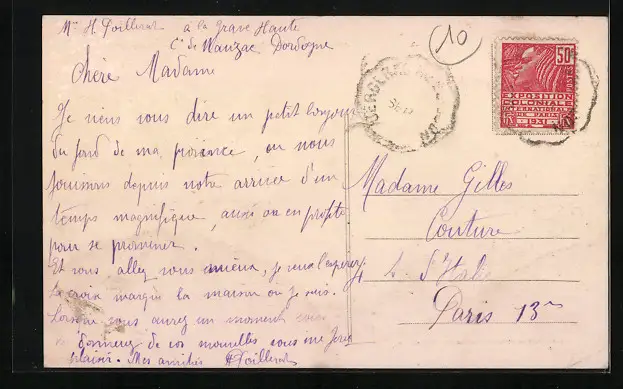 Mme H. Poillerat à la Grave Haute
Cne de Mauzac Dordogne
Chère Madame
Je viens vous dire un petit bonjour
du fond de ma province, où nous
jouissons depuis notre arrivée d'un
temps magnifique, aussi on en profite
pour se promener.
Et vous allez vous mieux, je veux l'espérer
La croix marque la maison où je suis.
Lorsque vous aurez un moment
donnez de vos nouvelles vous me ferez
plaisir. Mes amitiés HPoillerat
10
BERGERAC
50c
POSTES
EXPOSITION
COLONIALE
INTERNATIONALE
DE PARIS
1931
Madame Gilles
Couture
d'Italie
Paris 13me